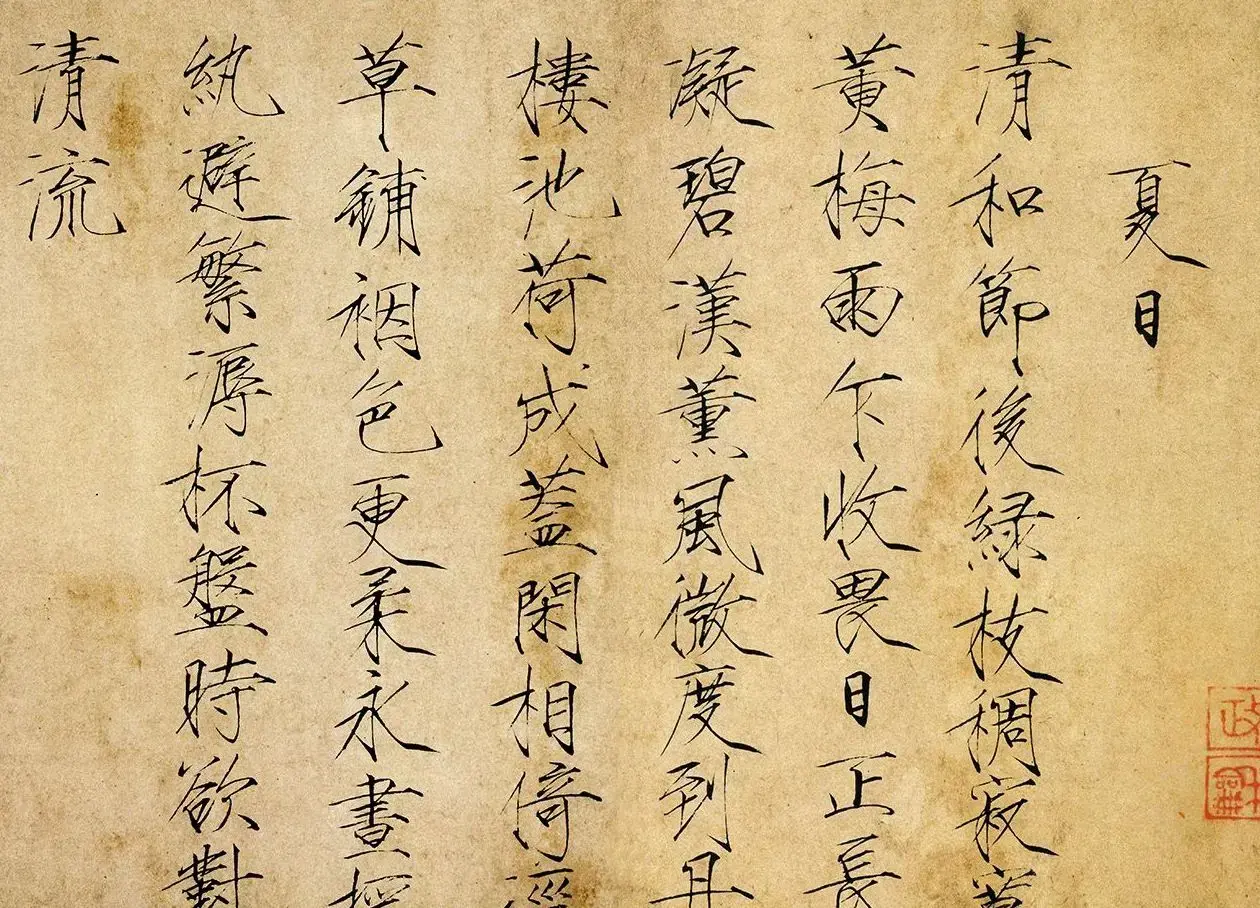 夏日
清和節後緑枝稠寂
黄梅雨乍收畏日正長
凝碧漢薰風微度到丹
樓池荷成蓋閑相倚
草鋪裀色更柔永晝
紈避繁溽杯盤時欲對
清流